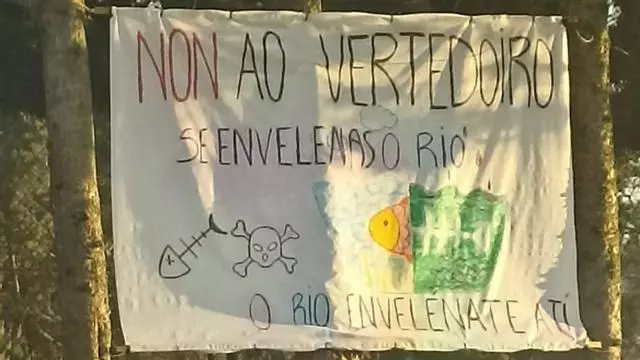 NON AO VERTEDOIRO
SE ENVELENAS O RIO
O RIO ENVELENATE A TI